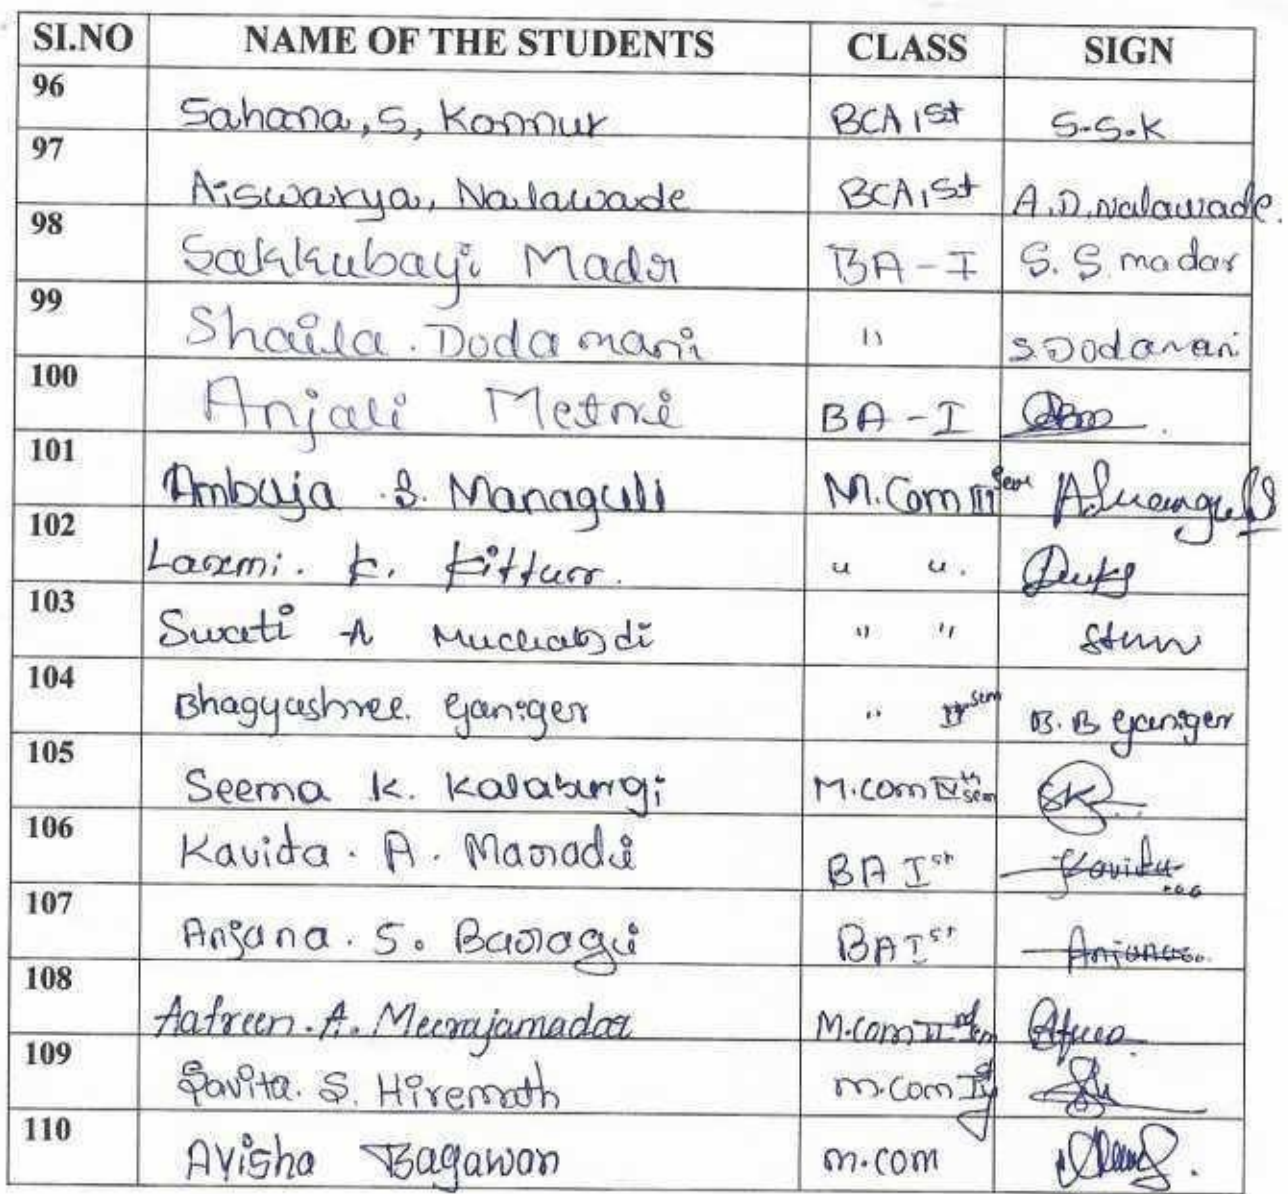 SI.NO NAME OF THE STUDENTS CLASS SIGN
96 Sahana, S, Konnur BCA 1St S-S.K
97 Aiswarya, Nalawade BCA 1St A.D. Nalawade.
98 Sakkubayi Madr BA - I S. S. madar
99 Shaila . Dodamani " S Dodamani
100 Anjali Metni BA - I
101 Ambuja . S. Managuli M.Com III Sem
102 Laxmi . K. Kittur. " ".
103 Swati A " "
104 Bhagyashree. Ganiger " Sem B. B Ganiger
105 Seema K. Kalaburgi M.com IV th sem SK
106 Kavita . A . Maradi BA I st Kavita
107 Anjana . S. Baragi BA I st Anjana
108 Aafreen . A. Meerajamadar M.com II nd Sem
109 Savita. S. Hiremath m.com
110 Avisha Bagawan m.com